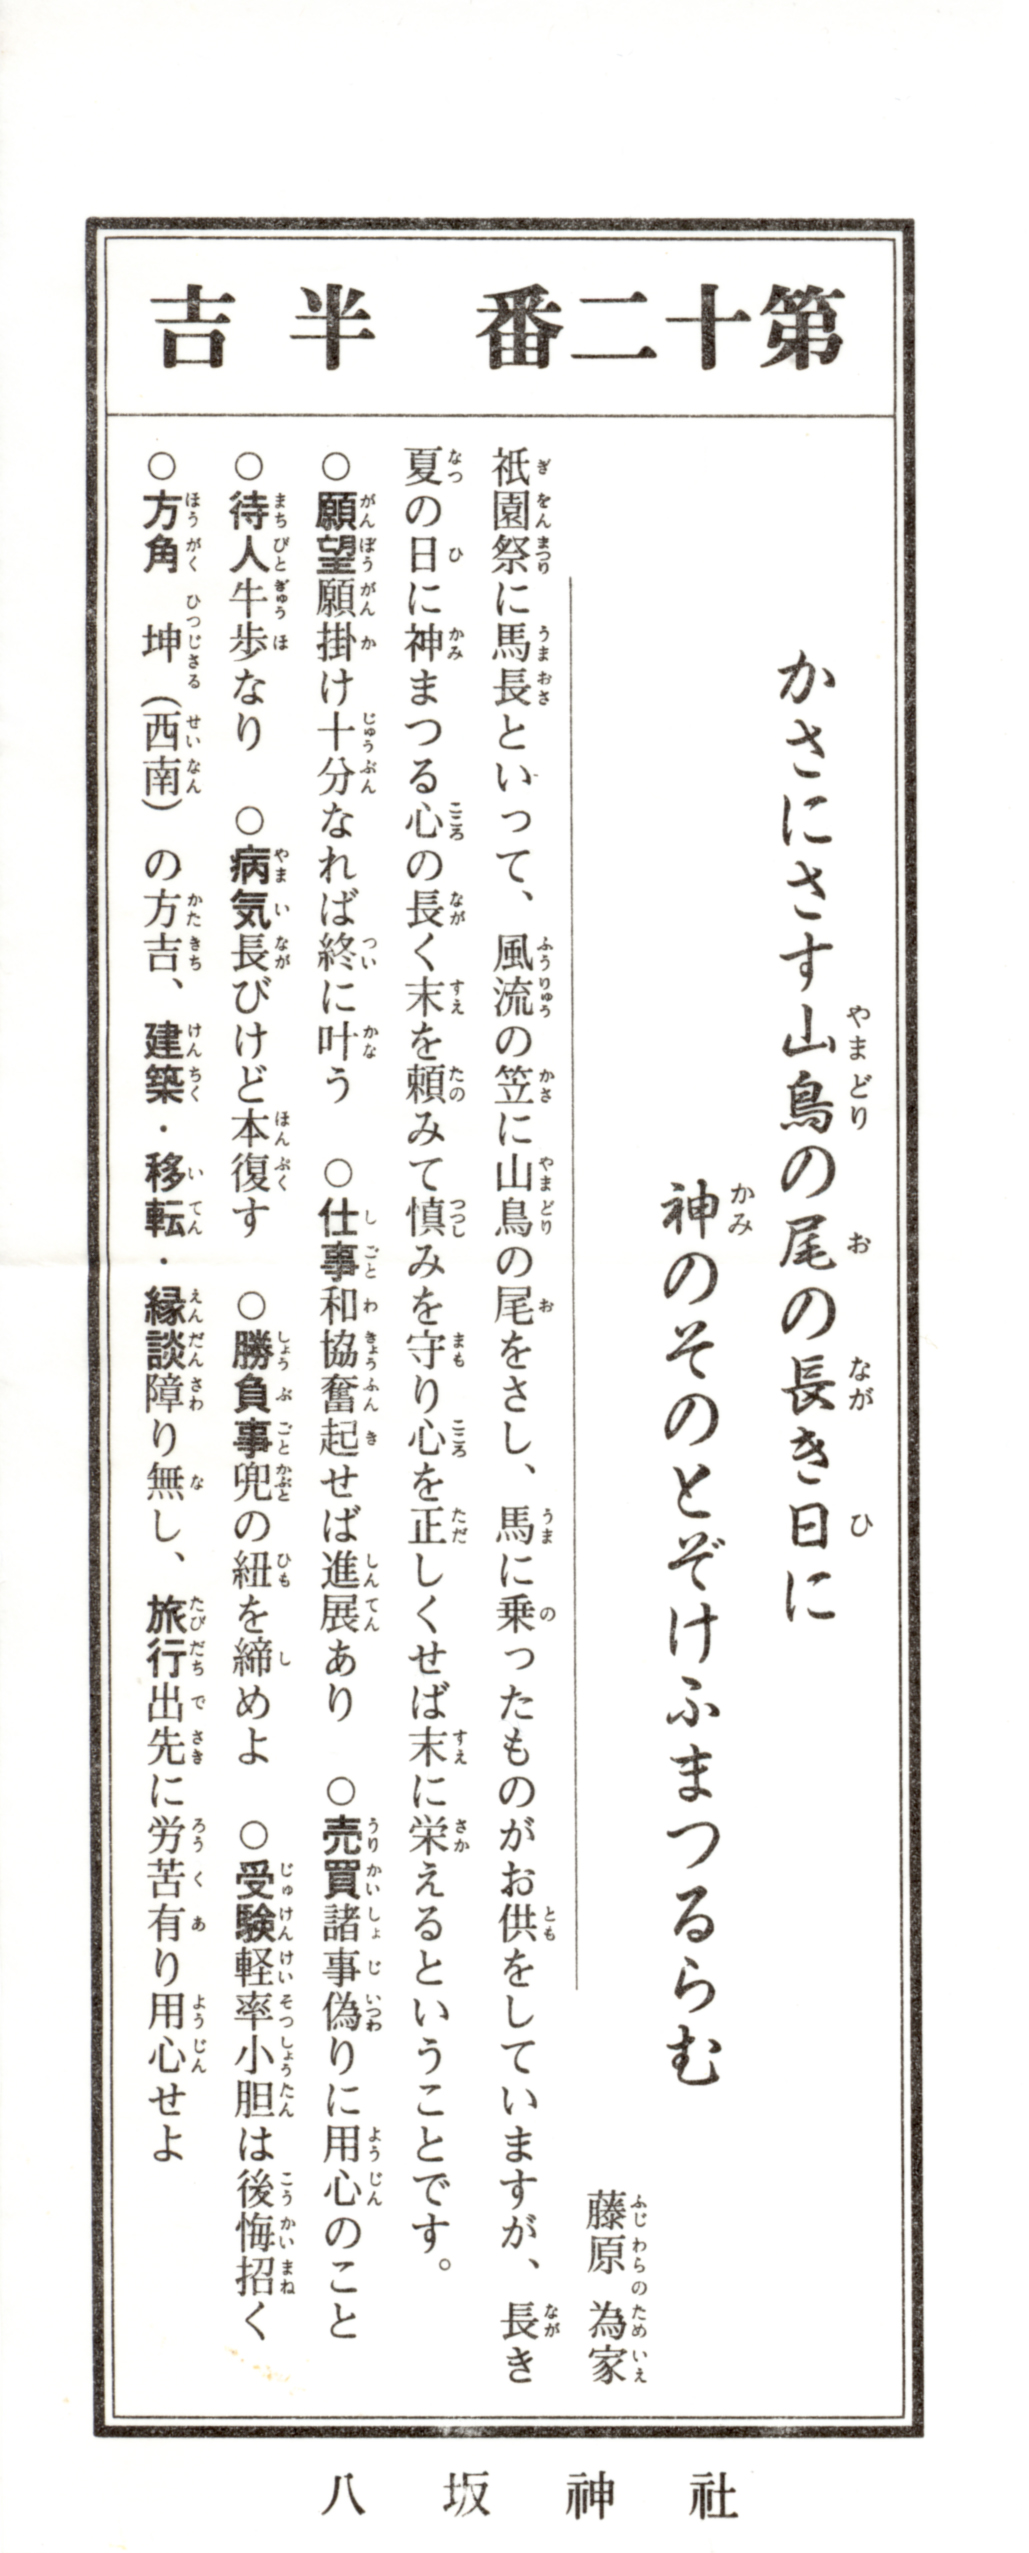 第十二番 半吉
かさにさす山鳥の尾の長き日に
神のそのとぞけふまつるらむ
藤原為家
祇園祭に馬長といって、風流の笠に山鳥の尾をさし、馬に乗ったものがお供をしていますが、長き
夏の日に神まつる心の長く末を頼みて慎みを守り心を正しくせば末に栄えるということです。
○願望願掛け十分なれば終に叶う ○仕事和協奮起せば進展あり ○売買諸事偽りに用心のこと
○待人牛歩なり ○病気長びけど本復す ○勝負事兜の紐を締めよ ○受験軽率小胆は後悔招く
○方角 坤(西南)の方吉、建築・移転・縁談障り無し、旅行出先に労苦有り用心せよ
八坂神社